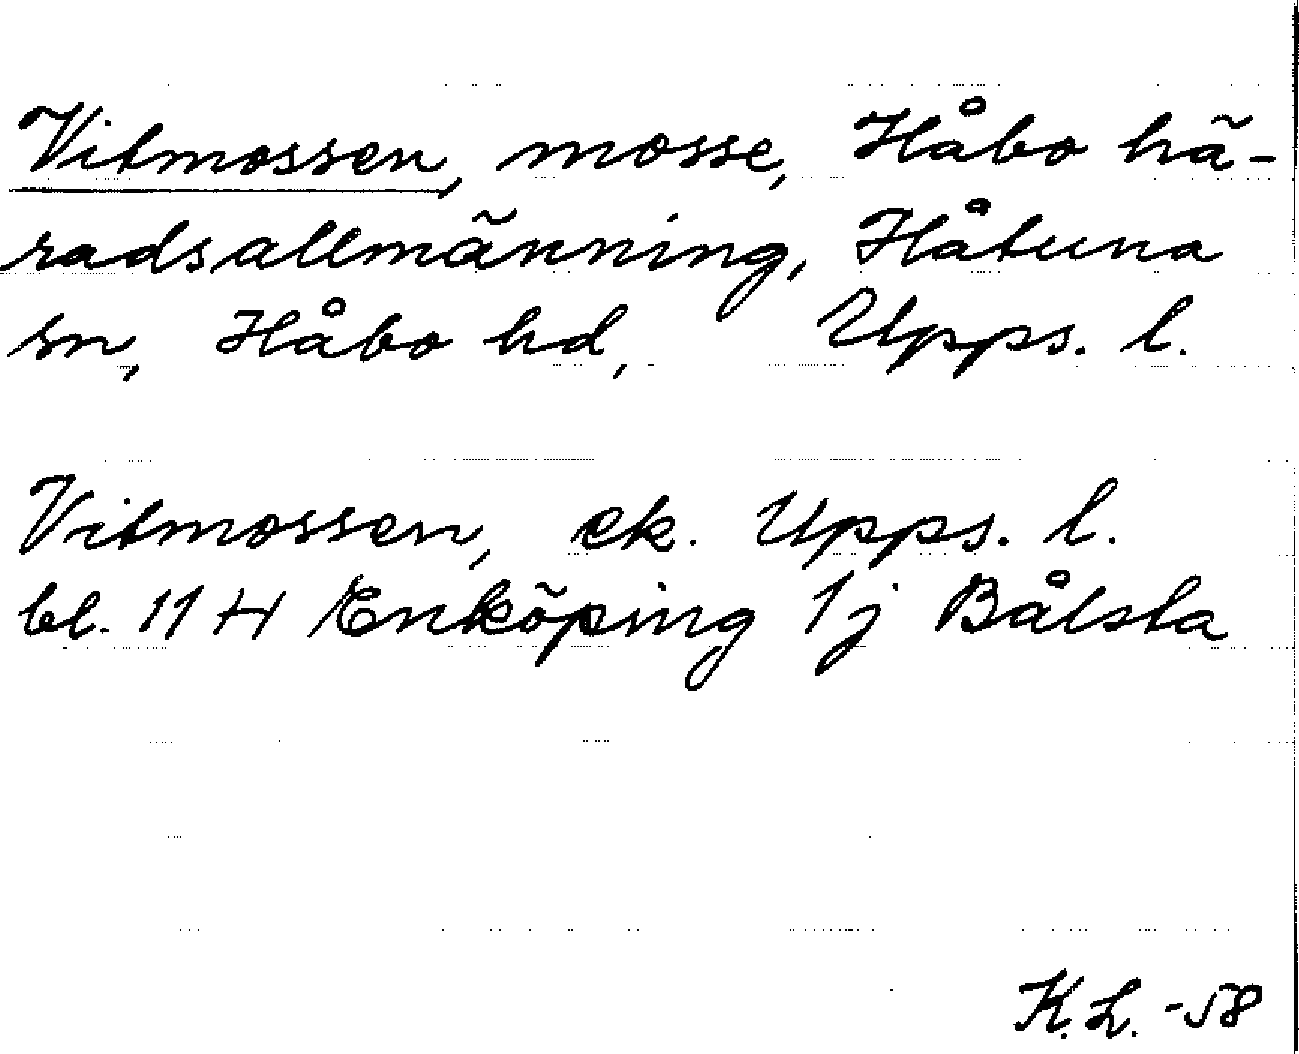 Vitmossen, mosse, Håbo hä-
radsallmänning, Håtuna
sn, Håbo hd, Upps. l.
Vitmossen, ek. Upps. l.
bl. 11 H Enköping 1j Bålsta
K.L. -58